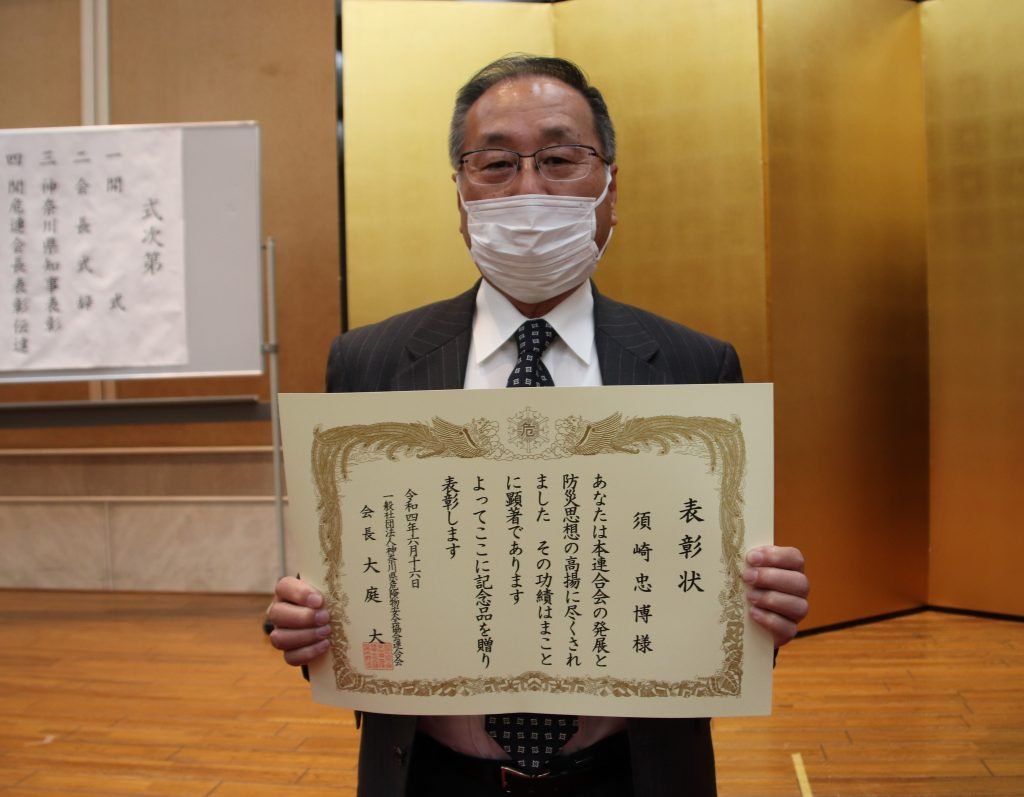 式次第
一 開 式
二 会長式辞
三 神奈川県知事表彰
四 関危連会長表彰伝達
危
表彰状
須崎忠博様
あなたは本連合会の発展と
防災思想の高揚に尽くされ
ました その功績はまこと
に顕著であります
よってここに記念品を贈り
表彰します
令和四年六月十六日
一般社団法人神奈川県危険物安全協会連合会
会長 大庭 大